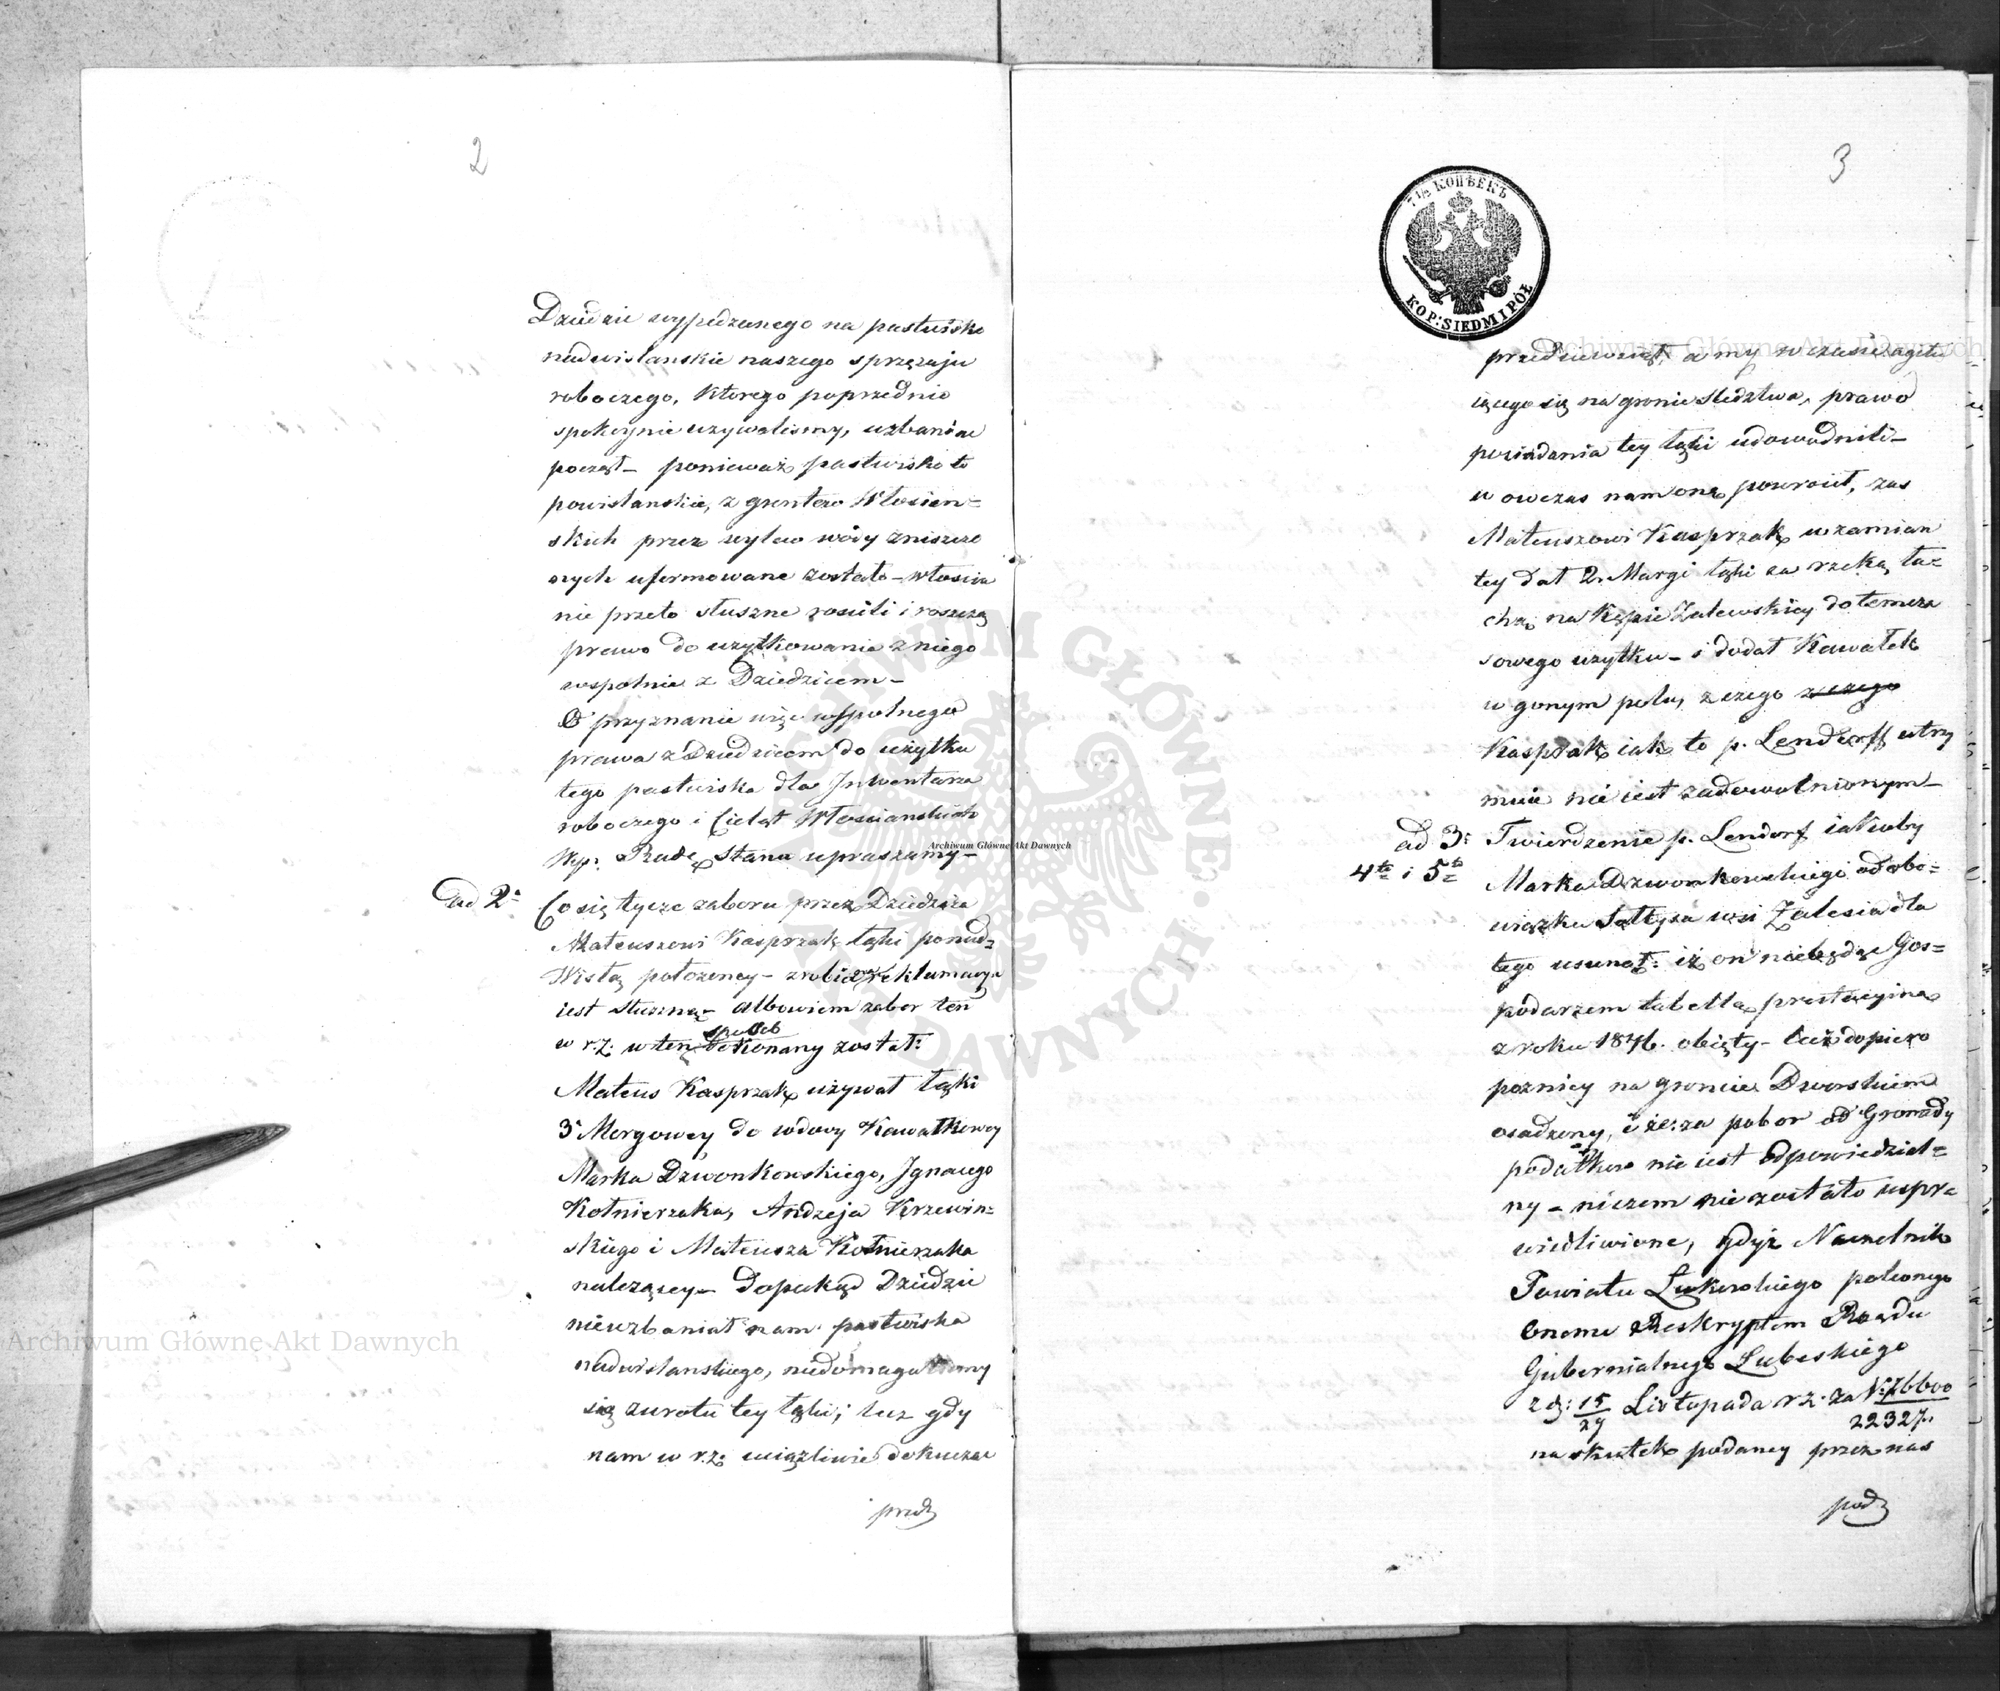 2
Dziedzic wypędzanego na pastwisko
nadwislanskie naszego sprzężaju
roboczego, ktorego poprzednio
spokoynie uzywalismy, wzbaniac
począł – ponieważ pastwisko to
powislanskie, z gruntow Włoscian=
skich przez wylew wody zniszczo
nych uformowane zostało – włoscia
nie przeto słuszne rościli i roszczą
prawo do uzytkowania z niego
wspolnie z Dziedzicem –
O przyznanie więc wspolnego
prawa z Dziedzicem do użytku
tego pastwiska dla Inwentarza
roboczego i Cieląt Włoscianskich
Wys: Radę Stanu upraszamy –
ad 2: Co się tycze zaboru przez Dziedzica
Mateuszowi Kasprzak łąki ponad=
Wisłą położoney – zrobiona reklamacya
iest słuszną – albowiem zabor ten
sposob
w r. z: w ten dokonany został:
Mateus Kasprzak używał łąki
3 Morgowey do wdowy Kawałkowey
Marka Dzwonkowskiego, Ignacego
Kołnierzaka, Andzeja Krzewin=
skiego i Mateusza Kołnierzaka
należącey – Dopokąd Dziedzic
niewzbaniał nam pastwiska
nadwislanskiego, niedomagaliśmy
się zwrotu tey łąki; lecz gdy
nam w r. z: uciążliwie dokuczac
przed
3
7 1/2 КОПѢЕКЪ
KOP: SIEDM I PÓŁ
przedsiewziął, a my w czasie agitu
iącego się na gruncie sledztwa, prawo
posiadania tey łąki udowodnili –
w owczas nam oną powrocił, zas
Mateuszowi Kasprzak w zamian
tey dał 2. Margi łąki za rzeką ła=
chą na Kępie Zalewskiey dotemcza
sowego uzytku – i dodał Kawałek
w gonym polu, z czego z czego
Kasprzak iak to p. Lendorff utrzy
muie nie iest zadowolnionym –
ad 3: Twierdzenie p. Lendorf iakoby
4te i 5te Marka Dzwonkowskiego od obo=
wiązku Sołtysa wsi Zalesia dla
tego usunął: iż on niebędąc Gos=
podarzem tabellą prestacyiną
z roku 1846. obięty – lecz dopiero
pozniey na gruncie Dworskiem
osadzony, i że za pobor od Gromady
podatkow nie iest odpowiedzial=
ny – niczem nie zostało uspr=
wiedliwione, gdyż Naczelnik
Powiatu Łukowskiego polecnego
onemu Reskryptem Rządu
Gubernialnego Lubelskiego
z d: 15/27 Listopada r. z. za N: 76600/22327.
na skutek podaney przez nas
pod
Archiwum Główne Akt Dawnych
Archiwum Główne Akt Dawnych
Archiwum Główne Akt Dawnych
ARCHIWUM GŁÓWNE AKT DAWNYCH